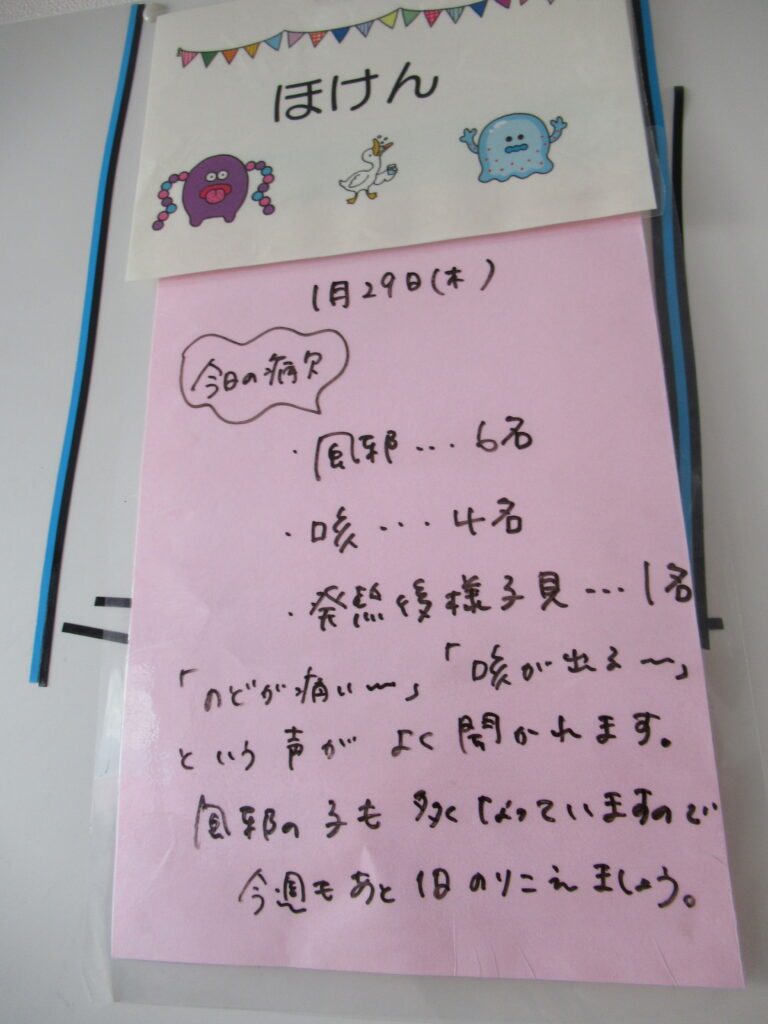 ほけん
1月29日(木)
今日の病欠
・風邪…6名
・咳…4名
・発熱後様子見…1名
「のどが痛い〜」「咳が出る〜」
という声がよく聞かれます。
風邪の子も多くなっていますので
今週もあと1日のりこえましょう。